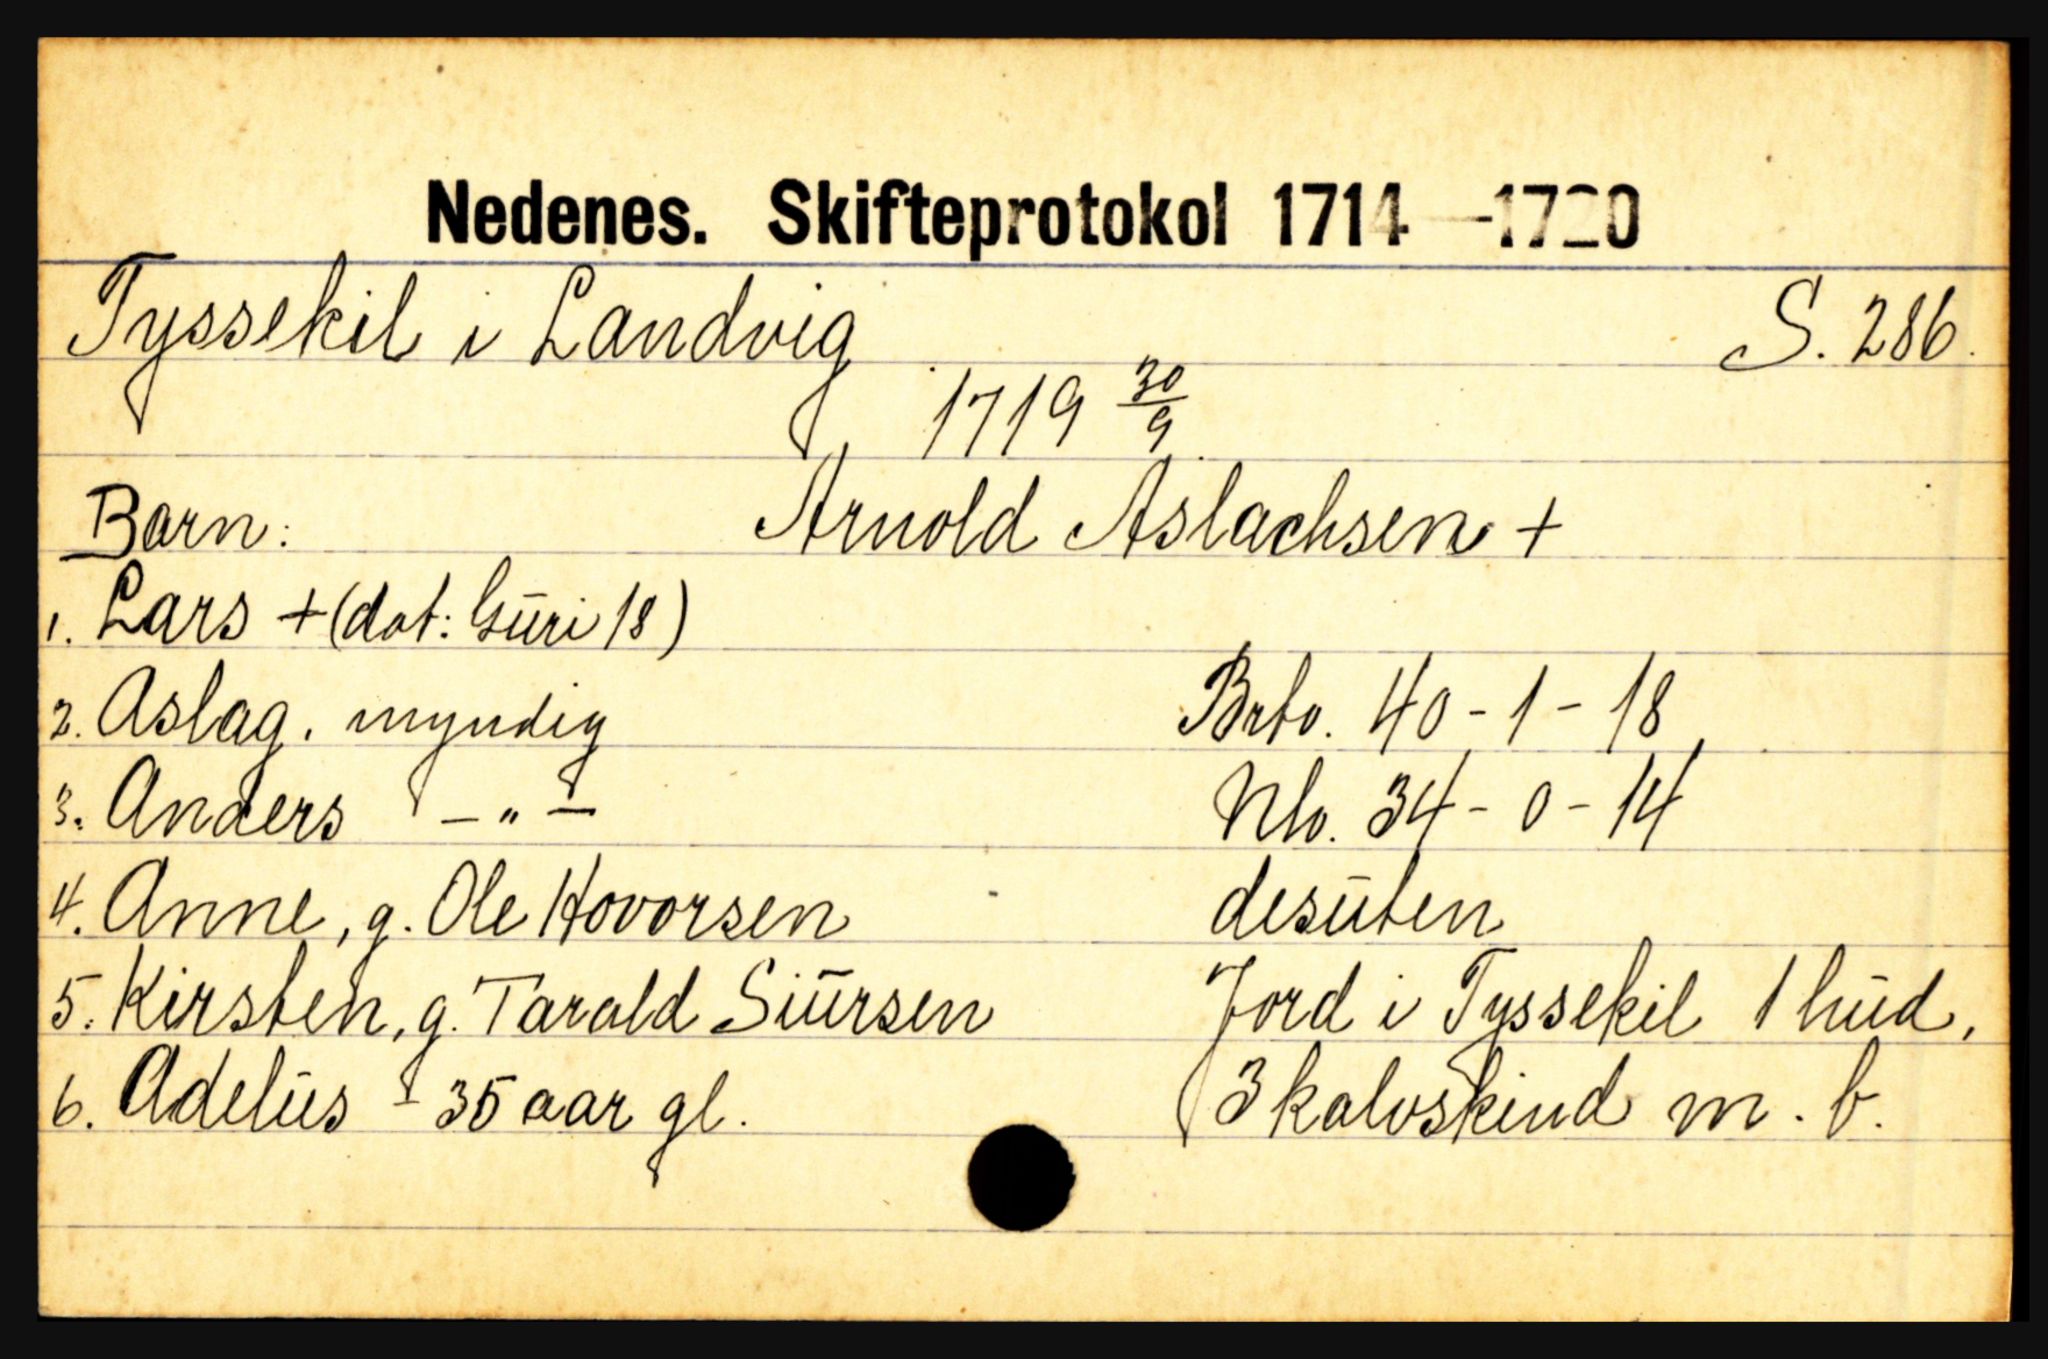 Nedenes. Skifteprotokol 1714—1720
Tyssekil i Landvig S. 286.
1719 30/9
Barn: Arnold Aslachsen +
1. Lars + (dat: Guri 18)
2. Aslag. myndig Brto. 40-1-18
3. Anders —"— Nlo. 34-0-14
4. Anne, g. Ole Hovorsen desūten
5. Kirsten, g. Tarald Siūrsen Jord i Tyssekil 1 hūd,
6. Adelūs - 35 aar gl. 3 kalvskind m. b.